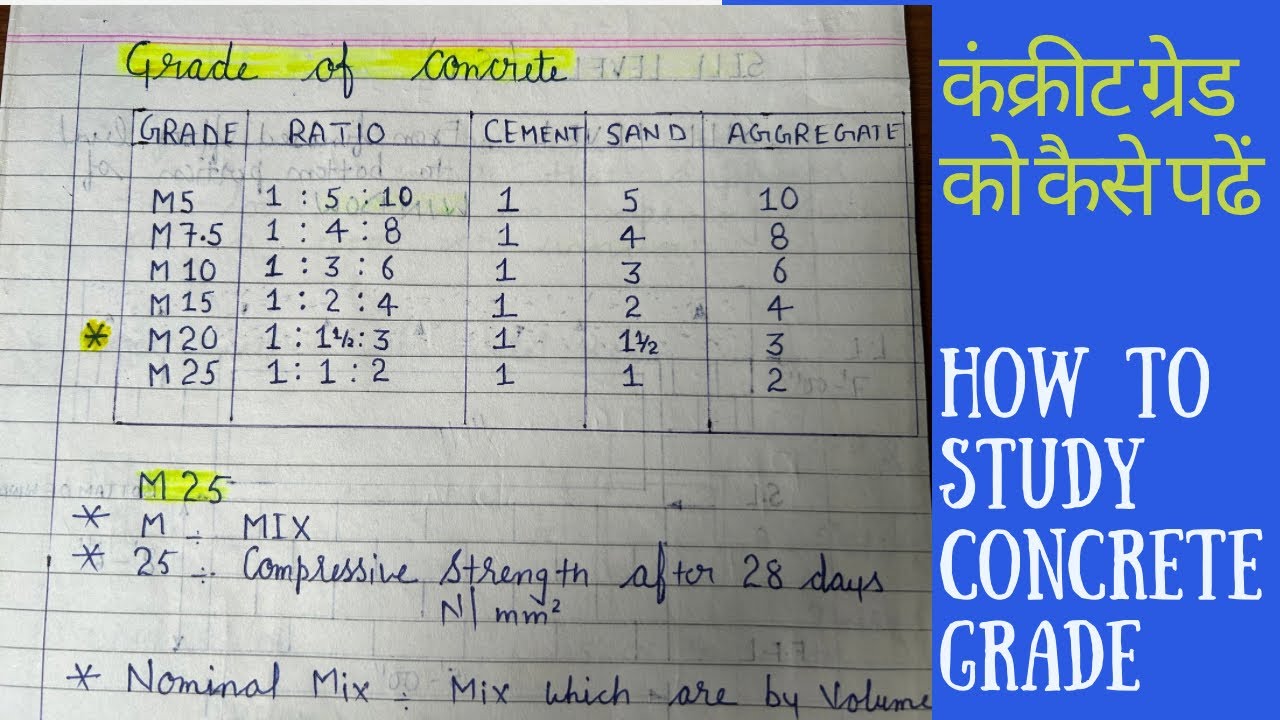 Grade of Concrete
GRADE RATIO CEMENT SAND AGGREGATE
M5 1 : 5 : 10 1 5 10
M 7.5 1 : 4 : 8 1 4 8
M 10 1 : 3 : 6 1 3 6
M 15 1 : 2 : 4 1 2 4
* M 20 1 : 1½ : 3 1 1½ 3
M 25 1 : 1 : 2 1 1 2
M 25
* M ÷ MIX
* 25 ÷ Compressive Strength after 28 days
N/mm²
* Nominal Mix ÷ Mix which are by Volume
कंक्रीट ग्रेड
को कैसे पढें
HOW TO
STUDY
CONCRETE
GRADE